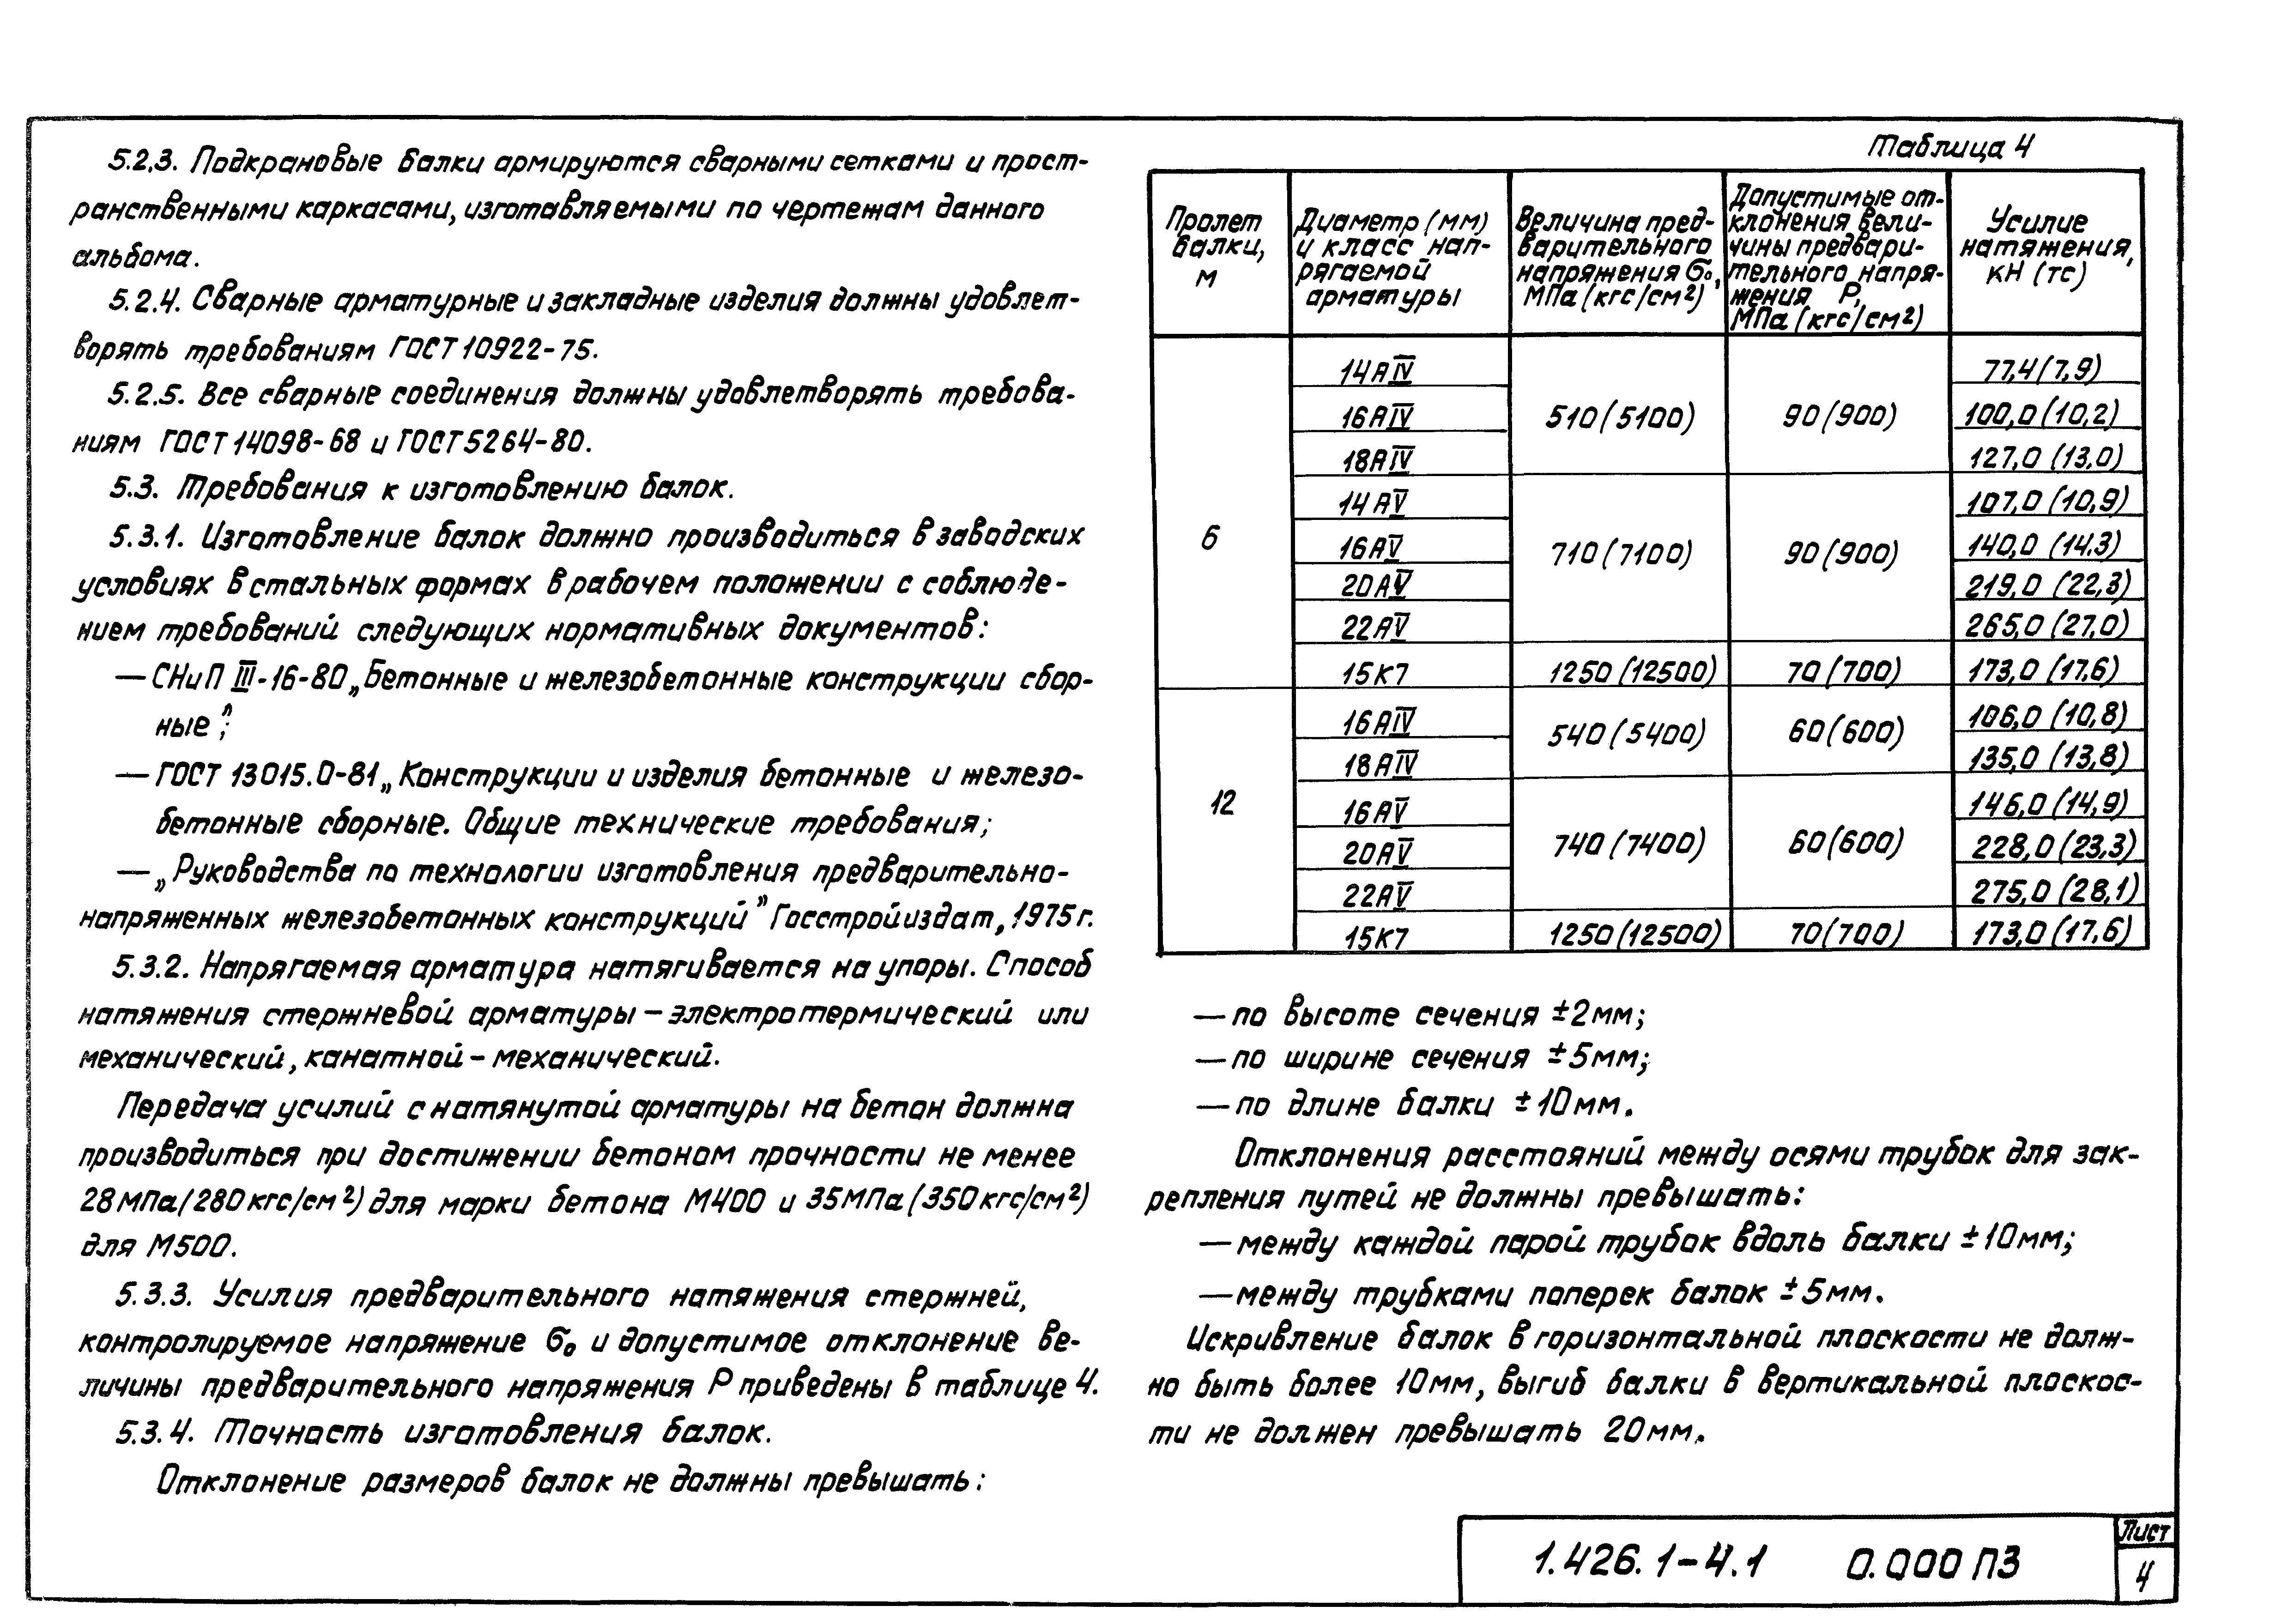 5.2.3. Подкрановые балки армируются сварными сетками и прост-
ранственными каркасами, изготавляемыми по чертежам данного
альбома.
5.2.4. Сварные арматурные и закладные изделия должны удовлет-
ворять требованиям ГОСТ 10922-75.
5.2.5. Все сварные соединения должны удовлетворять требова-
ниям ГОСТ 14098-68 и ГОСТ 5264-80.
5.3. Требования к изготовлению балок.
5.3.1. Изготовление балок должно производиться в заводских
условиях в стальных формах в рабочем положении с соблюде-
нием требований следующих нормативных документов:
— СНиП III-16-80 „Бетонные и железобетонные конструкции сбор-
ные";
— ГОСТ 13015.0-81 „Конструкции и изделия бетонные и железо-
бетонные сборные. Общие технические требования;
— „Руководства по технологии изготовления предварительно-
напряженных железобетонных конструкций" Госстройиздат, 1975г.
5.3.2. Напрягаемая арматура натягивается на упоры. Способ
натяжения стержневой арматуры – электротермический или
механический, канатной – механический.
Передача усилий с натянутой арматуры на бетон должна
производиться при достижении бетоном прочности не менее
28 МПа (280 кгс/см²) для марки бетона М400 и 35 МПа (350 кгс/см²)
для М500.
5.3.3. Усилия предварительного натяжения стержней,
контролируемое напряжение σ₀ и допустимое отклонение ве-
личины предварительного напряжения Р приведены в таблице 4.
5.3.4. Точность изготовления балок.
Отклонение размеров балок не должны превышать:
Таблица 4
Пролет балки, м | Диаметр (мм) и класс нап-рягаемой арматуры | Величина пред-варительного напряжения σ₀, МПа (кгс/см²) | Допустимые от-клонения вели-чины предвари-тельного напря-жения Р, МПа (кгс/см²) | Усилие натяжения, кН (тс)
6 | 14АIV | 510 (5100) | 90 (900) | 77,4 (7,9)
16АIV | 100,0 (10,2)
18АIV | 127,0 (13,0)
14АV | 710 (7100) | 90 (900) | 107,0 (10,9)
16АV | 140,0 (14,3)
20АV | 219,0 (22,3)
22АV | 265,0 (27,0)
15К7 | 1250 (12500) | 70 (700) | 173,0 (17,6)
12 | 16АIV | 540 (5400) | 60 (600) | 106,0 (10,8)
18АIV | 135,0 (13,8)
16АV | 740 (7400) | 60 (600) | 146,0 (14,9)
20АV | 228,0 (23,3)
22АV | 275,0 (28,1)
15К7 | 1250 (12500) | 70 (700) | 173,0 (17,6)
— по высоте сечения ±2мм;
— по ширине сечения ±5мм;
— по длине балки ±10мм.
Отклонения расстояний между осями трубок для зак-
репления путей не должны превышать:
— между каждой парой трубок вдоль балки ±10мм;
— между трубками поперек балок ±5мм.
Искривление балок в горизонтальной плоскости не долж-
но быть более 10мм, выгиб балки в вертикальной плоскос-
ти не должен превышать 20мм.
1.426.1-4.1 0.000 ПЗ
Лист
4